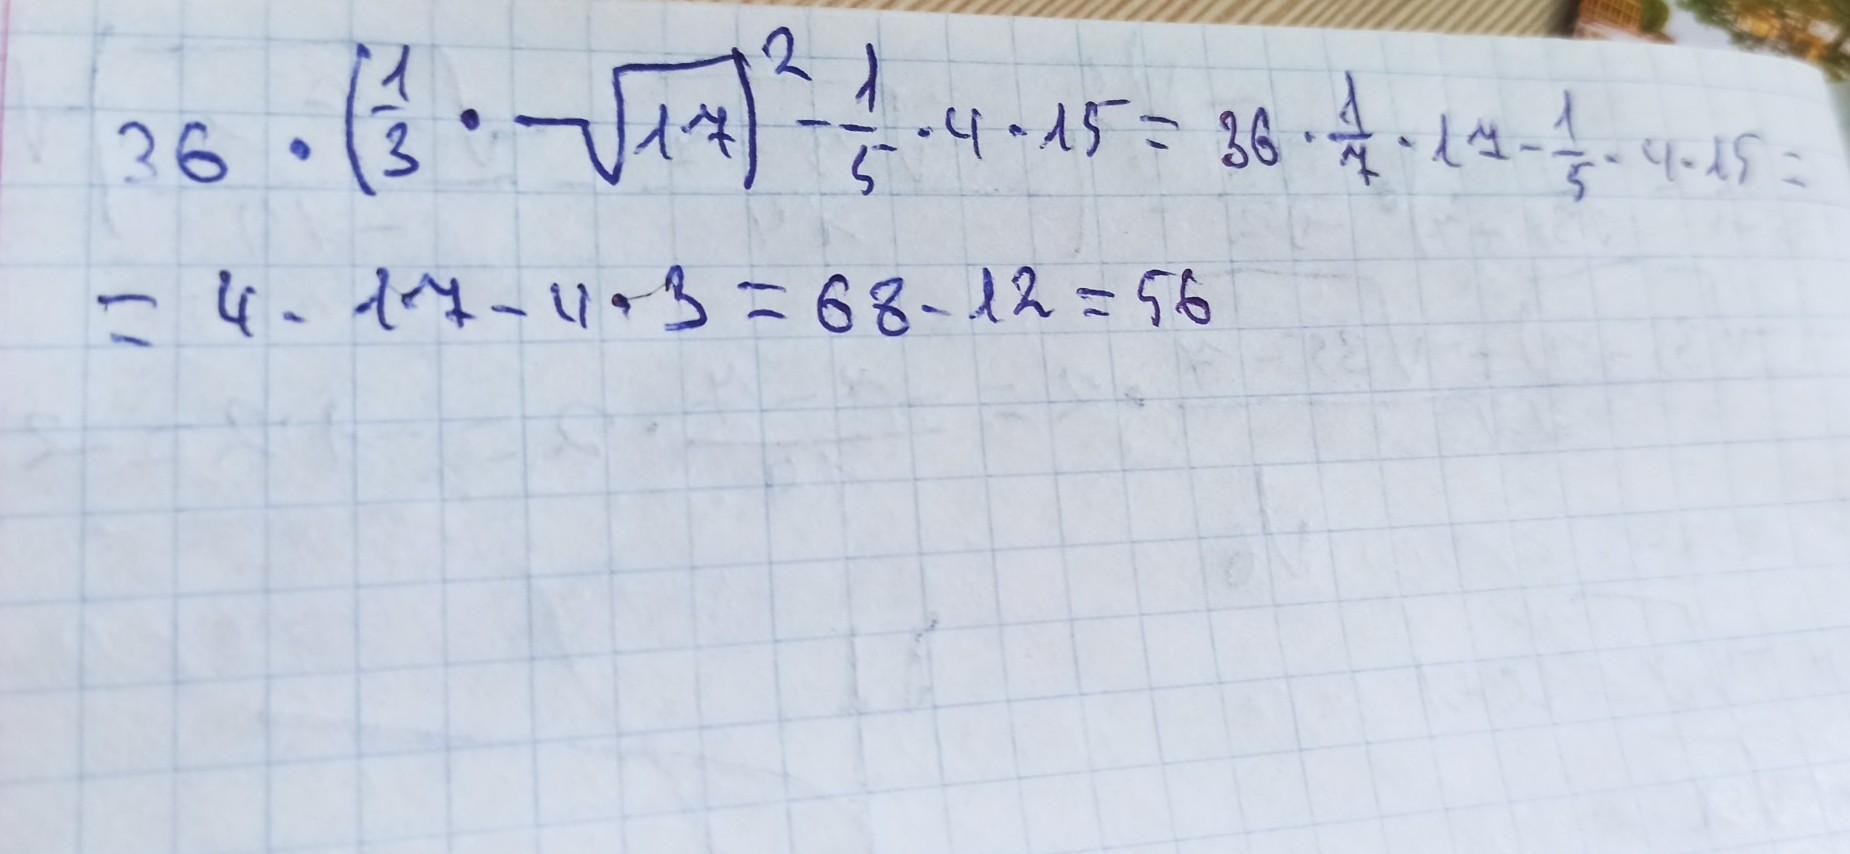 36 · (1/3 · √17)² - 1/5 · 4 · 15 = 36 · 1/7 · 17 - 1/5 · 4 · 15 =
= 4 · 17 - 4 · 3 = 68 - 12 = 56